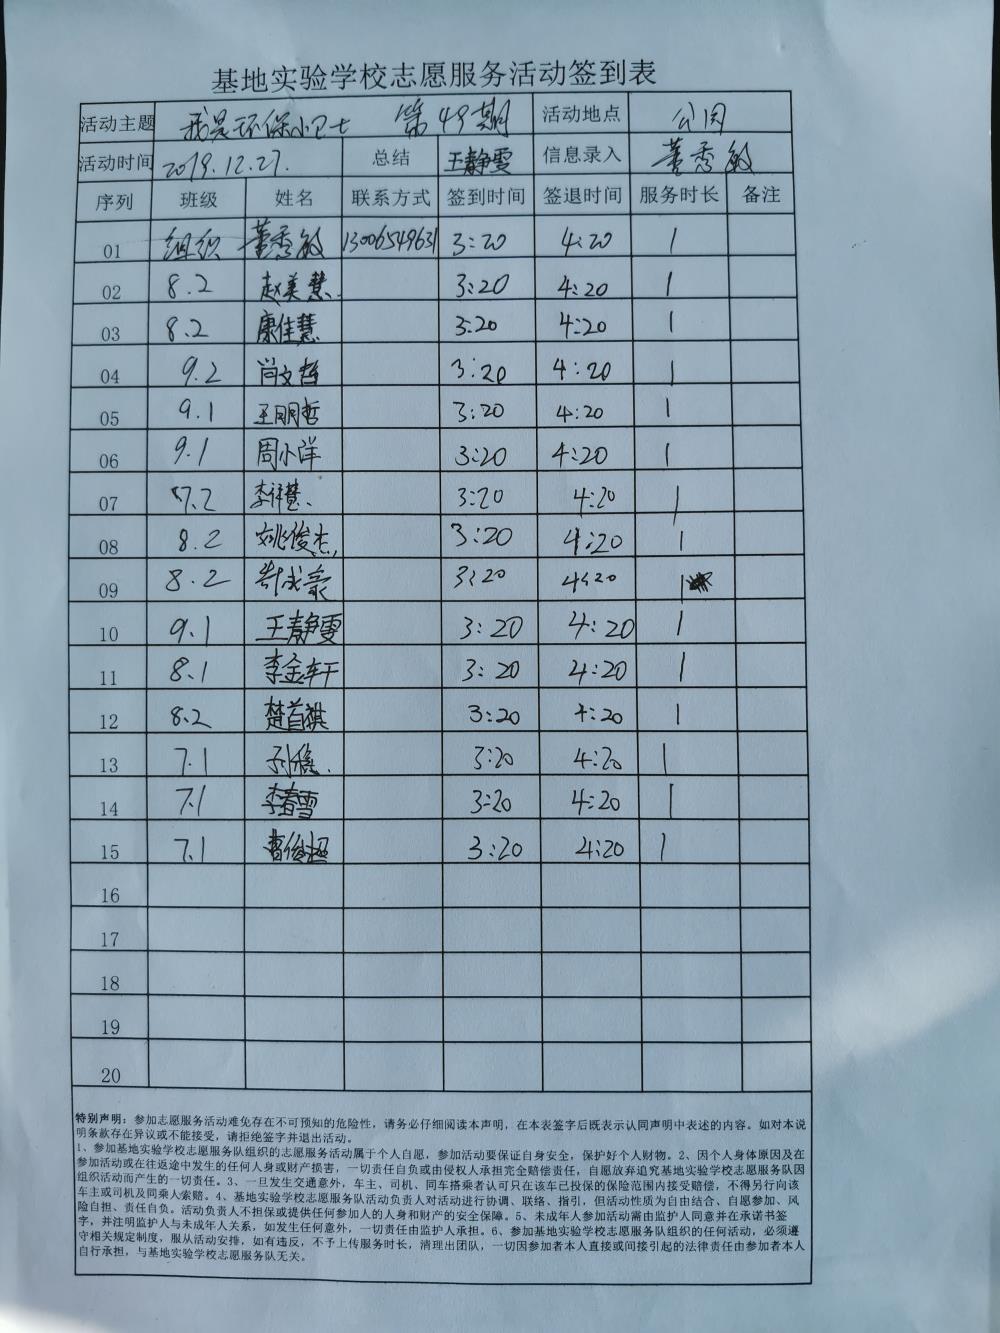 基地实验学校志愿服务活动签到表
活动主题 我是环保小卫士 第49期 活动地点 公园
活动时间 2019.12.27. 总结 王静雯 信息录入 董秀敏
序列 班级 姓名 联系方式 签到时间 签退时间 服务时长 备注
01 组织 董秀敏 13006549631 3:20 4:20 1
02 8.2 赵美慧 3:20 4:20 1
03 8.2 康佳慧 3:20 4:20 1
04 9.2 肖文哲 3:20 4:20 1
05 9.1 王明哲 3:20 4:20 1
06 9.1 周小洋 3:20 4:20 1
07 7.2 3:20 4:20 1
08 8.2 姚俊杰 3:20 4:20 1
09 8.2 3:20 4:20 1
10 9.1 王静雯 3:20 4:20 1
11 8.1 李金轩 3:20 4:20 1
12 8.2 楚首祺 3:20 4:20 1
13 7.1 3:20 4:20 1
14 7.1 李春雪 3:20 4:20 1
15 7.1 曹俊超 3:20 4:20 1
16
17
18
19
20
特别声明：参加志愿服务活动难免存在不可预知的危险性，请务必仔细阅读本声明，在本表签字后既表示认同声明中表述的内容。如对本说
明条款存在异议或不能接受，请拒绝签字并退出活动。
1、参加基地实验学校志愿服务队组织的志愿服务活动属于个人自愿，参加活动要保证自身安全，保护好个人财物。2、因个人身体原因及在
参加活动或在往返途中发生的任何人身或财产损害，一切责任自负或由侵权人承担完全赔偿责任，自愿放弃追究基地实验学校志愿服务队因
组织活动而产生的一切责任。3、一旦发生交通意外，车主、司机、同车搭乘者认可只在该车已投保的保险范围内接受赔偿，不得另行向该
车主或司机及同乘人索赔。4、基地实验学校志愿服务队活动负责人对活动进行协调、联络、指引，但活动性质为自由结合、自愿参加、风
险自担、责任自负。活动负责人不担保或提供任何参加人的人身和财产的安全保障。5、未成年人参加活动需由监护人同意并在承诺书签
字，并注明监护人与未成年人关系，如发生任何意外，一切责任由监护人承担。6、参加基地实验学校志愿服务队组织的任何活动，必须遵
守相关规定制度，服从活动安排，如有违反，不予上传服务时长，清理出团队，一切因参加者本人直接或间接引起的法律责任由参加者本人
自行承担，与基地实验学校志愿服务队无关。